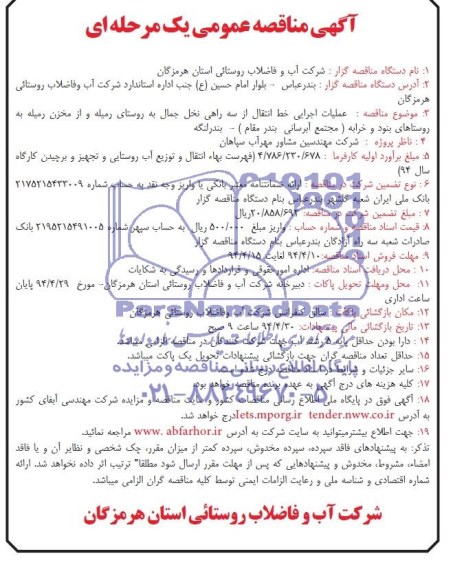 آگهی مناقصه عمومی یک مرحله ای
۱: نام دستگاه مناقصه گزار : شرکت آب و فاضلاب روستائی استان هرمزگان
۲: آدرس دستگاه مناقصه گزار : بندرعباس – بلوار امام حسین (ع) جنب اداره استاندارد شرکت آب وفاضلاب روستائی
هرمزگان
۳: موضوع مناقصه : عملیات اجرایی خط انتقال از سه راهی نخل جمال به روستای رمیله و از مخزن رمیله به
روستاهای بنود و خرابه ( مجتمع آبرسانی بندر مقام ) – بندرلنگه
۴ : ناظر پروژه : شرکت مهندسین مشاور مهرآب سپاهان
۵: مبلغ برآورد اولیه کارفرما : ۴/۷۸۶/۲۳۰/۶۷۸ (فهرست بهاء انتقال و توزیع آب روستایی و تجهیز و برچیدن کارگاه
سال ۹۴)
۶ : نوع تضمین شرکت در مناقصه : ارائه ضمانتنامه معتبر بانکی یا واریز وجه نقد به حساب شماره ۲۱۷۵۲۱۵۴۳۳۰۰۹
بانک ملی ایران شعبه گلشهر بندرعباس بنام دستگاه مناقصه گزار
۷ : مبلغ تضمین شرکت در مناقصه: ۲۰/۸۵۸/۶۹۲ریال
۸: قیمت اسناد مناقصه و شماره حساب : واریز مبلغ ۵۰۰/۰۰۰ ریال به حساب سپهر شماره ۲۱۹۵۲۱۵۴۹۱۰۰۵ بانک
صادرات شعبه سه راه آزادگان بندرعباس بنام دستگاه مناقصه گزار
۹: مهلت فروش اسناد مناقصه:۹۴/۴/۱۰ لغایت ۹۴/۴/۱۵
۱۰ : محل دریافت اسناد مناقصه: اداره امورحقوقی و قراردادها و رسیدگی به شکایات
۱۱ : محل ومهلت تحویل پاکات : دبیرخانه شرکت آب و فاضلاب روستائی استان هرمزگان– مورخ ۹۴/۴/۲۹ پایان
ساعت اداری
۱۲: مکان بازگشائی پاکات : سالن کنفرانس شرکت آب وفاضلاب روستائی هرمزگان
۱۳: تاریخ بازگشائی مالی پیشنهادات: ۹۴/۴/۳۰ ساعت ۹ صبح
۱۴ : دارا بودن حداقل پایه ۵ رشته آب جهت شرکت کنندگان در مناقصه الزامی میباشد.
۱۵: حداقل تعداد مناقصه گران جهت بازگشائی پیشنهادات تحویل یک پاکت میباشد.
۱۶: سایر جزئیات و شرایط در اسناد مناقصه درج شده
۱۷: کلیه هزینه های درج آگهی به عهده برنده مناقصه خواهد بود.
۱۸: آگهی فوق در پایگاه ملی اطلاع رسانی مناقصات کشور و سایت مناقصه و مزایده شرکت مهندسی آبفای کشور
به آدرس Iets.mporg.ir tender.nww.co.ir درج خواهد شد.
۱۹: جهت اطلاع بیشترمیتوانید به سایت شرکت به آدرس www. abfarhor.ir مراجعه نمائید.
تذکر: به پیشنهادهای فاقد سپرده، سپرده مخدوش، سپرده کمتر از میزان مقرر، چک شخصی و نظایر آن و یا فاقد
امضاء، مشروط، مخدوش و پیشنهادهایی که پس از مهلت مقرر ارسال شود مطلقا" ترتیب اثر داده نخواهد شد. ارائه
شماره اقتصادی و شناسه ملی و رعایت الزامات ایمنی توسط کلیه مناقصه گران الزامی میباشد.
شرکت آب و فاضلاب روستائی استان هرمزگان
ParsNamadData
۰۲۱-۸۸۳۴۹۶۷۰